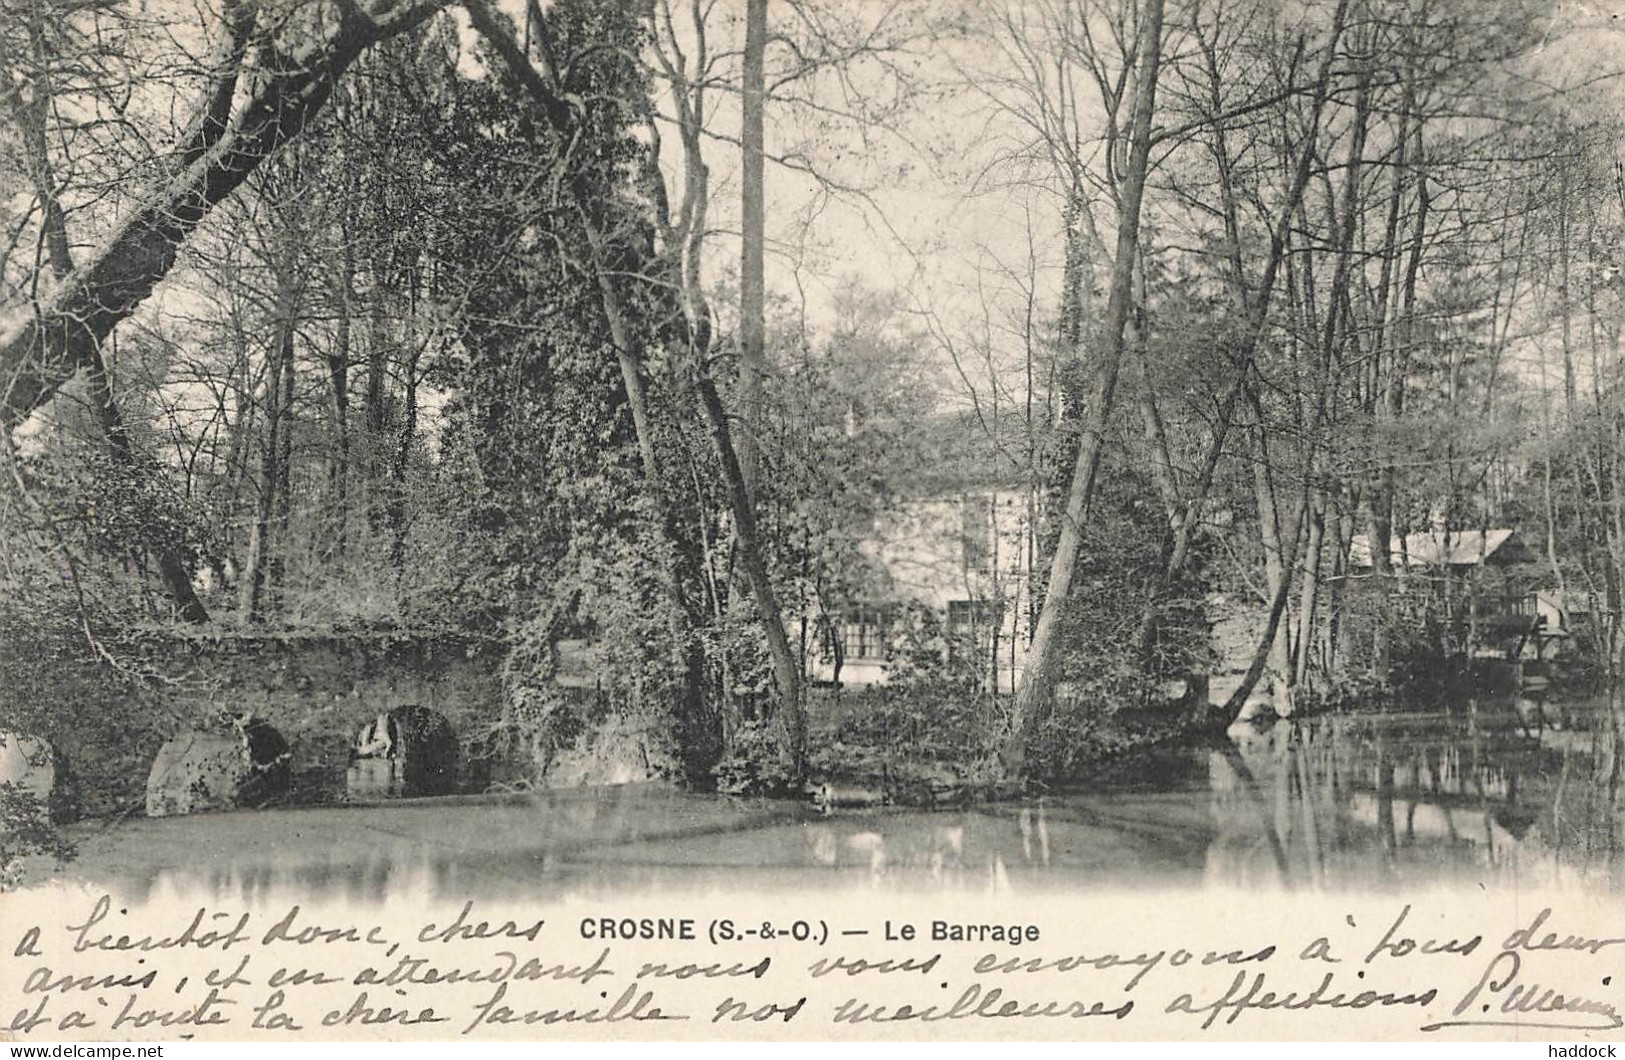 CROSNE (S.-&-O.) — Le Barrage
a bientôt donc, chers
amis, et en attendant nous vous envoyons à tous deux
et à toute la chère famille nos meilleures affections P.
www.delcampe.net
haddock